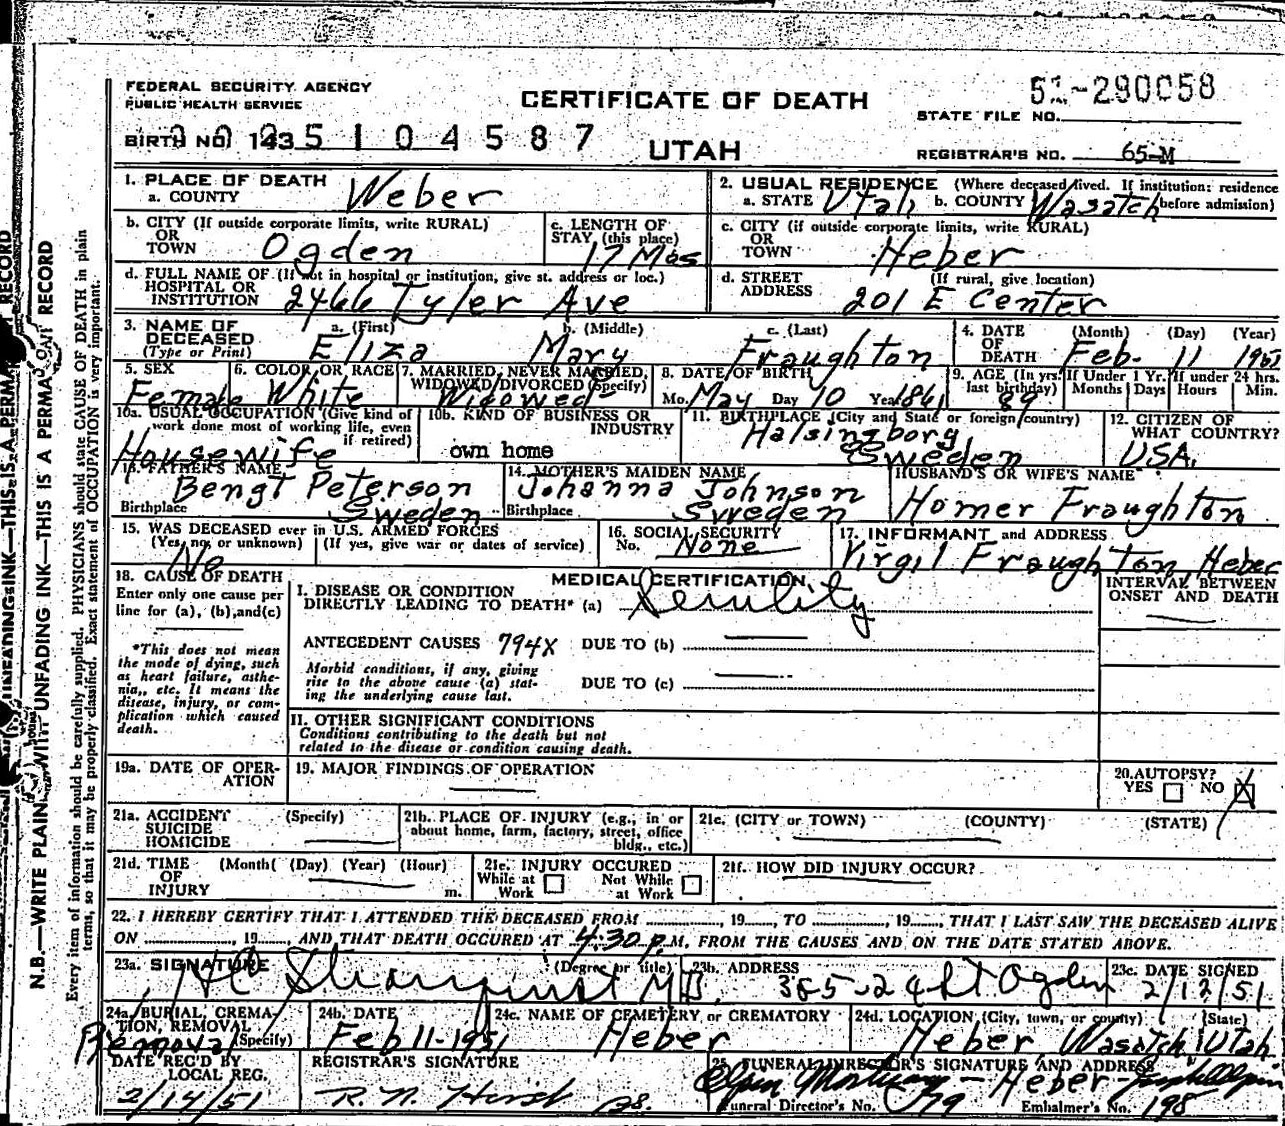 FEDERAL SECURITY AGENCY
PUBLIC HEALTH SERVICE
CERTIFICATE OF DEATH
51-290058
STATE FILE NO.
BIRTH NO. 143 5104587
UTAH
REGISTRAR'S NO. 65-M
1. PLACE OF DEATH
a. COUNTY Weber
2. USUAL RESIDENCE (Where deceased lived. If institution: residence
a. STATE Utah b. COUNTY Wasatch before admission)
b. CITY (If outside corporate limits, write RURAL)
OR
TOWN Ogden
c. LENGTH OF
STAY (this place) 17 Mos
c. CITY (if outside corporate limits, write RURAL)
OR
TOWN Heber
d. FULL NAME OF (If not in hospital or institution, give st. address or loc.)
HOSPITAL OR
INSTITUTION 2466 Tyler Ave
d. STREET (If rural, give location)
ADDRESS 201 E Center
3. NAME OF DECEASED (Type or Print)
a. (First) Eliza
b. (Middle) Mary
c. (Last) Fraughton
4. DATE OF DEATH (Month) (Day) (Year)
Feb. 11 1951
5. SEX
Female
6. COLOR OR RACE
White
7. MARRIED, NEVER MARRIED,
WIDOWED, DIVORCED (Specify)
Widowed
8. DATE OF BIRTH
Mo. May Day 10 Year 1861
9. AGE (In yrs. last birthday) 89
If Under 1 Yr. Months Days
If under 24 hrs. Hours Min.
10a. USUAL OCCUPATION (Give kind of
work done most of working life, even
if retired)
Housewife
10b. KIND OF BUSINESS OR
INDUSTRY
own home
11. BIRTHPLACE (City and State or foreign country)
Halsingborg,
Sweden
12. CITIZEN OF
WHAT COUNTRY?
USA.
13. FATHER'S NAME
Bengt Peterson
Birthplace Sweden
14. MOTHER'S MAIDEN NAME
Johanna Johnson
Birthplace Sweden
HUSBAND'S OR WIFE'S NAME
Homer Fraughton
15. WAS DECEASED ever in U.S. ARMED FORCES
(Yes, no, or unknown) (If yes, give war or dates of service)
No
16. SOCIAL SECURITY
No. None
17. INFORMANT and ADDRESS
Virgil Fraughton Heber
18. CAUSE OF DEATH
Enter only one cause per
line for (a), (b), and (c)
*This does not mean
the mode of dying, such
as heart failure, asthe-
nia,, etc. It means the
disease, injury, or com-
plication which caused
death.
MEDICAL CERTIFICATION
I. DISEASE OR CONDITION
DIRECTLY LEADING TO DEATH* (a) Senility
INTERVAL BETWEEN
ONSET AND DEATH
ANTECEDENT CAUSES 794X DUE TO (b)
Morbid conditions, if any, giving
rise to the above cause (a) stat-
ing the underlying cause last.
DUE TO (c)
II. OTHER SIGNIFICANT CONDITIONS
Conditions contributing to the death but not
related to the disease or condition causing death.
19a. DATE OF OPER-
ATION
19. MAJOR FINDINGS OF OPERATION
20. AUTOPSY?
YES NO X
21a. ACCIDENT (Specify)
SUICIDE
HOMICIDE
21b. PLACE OF INJURY (e.g., in or
about home, farm, factory, street, office
bldg., etc.)
21c. (CITY or TOWN) (COUNTY) (STATE)
21d. TIME (Month) (Day) (Year) (Hour)
OF
INJURY m.
21e. INJURY OCCURED
While at Work Not While at Work
21f. HOW DID INJURY OCCUR?
22. I HEREBY CERTIFY THAT I ATTENDED THE DECEASED FROM 19 TO , 19 , THAT I LAST SAW THE DECEASED ALIVE
ON , 19 AND THAT DEATH OCCURED AT 4:30 p.M, FROM THE CAUSES AND ON THE DATE STATED ABOVE.
23a. SIGNATURE (Degree or title)
M.D.
23b. ADDRESS
385-24 St Ogden
23c. DATE SIGNED
2/12/51
24a. BURIAL, CREMA-
TION, REMOVAL
(Specify) Removal
24b. DATE
Feb 11-1951
24c. NAME OF CEMETERY, or CREMATORY
Heber
24d. LOCATION (City, town, or county) (State)
Heber Wasatch Utah
DATE REC'D BY
LOCAL REG.
2/14/51
REGISTRAR'S SIGNATURE
R. N. Hirst
25. FUNERAL DIRECTOR'S SIGNATURE AND ADDRESS
Olpin Mortuary - Heber -
Funeral Director's No. 79 Embalmer's No. 198
N.B.—WRITE PLAINLY WITH UNFADING INK—THIS IS A PERMANENT RECORD
Every item of information should be carefully supplied. PHYSICIANS should state CAUSE OF DEATH in plain
terms, so that it may be properly classified. Exact statement of OCCUPATION is very important.